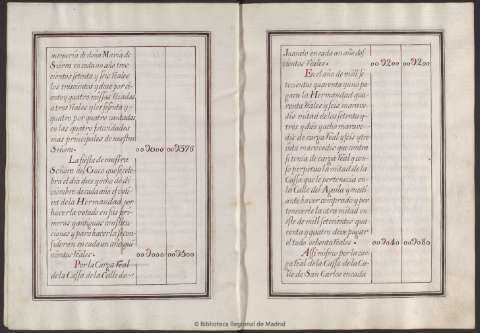 memoria de doña Maria de
Sierra en cada un año tres
cientos setenta y seis reales
los trescientos y doze por ci
ento y quatro missas rezadas
a tres reales y los sesenta y
quatro por quatro cantadas
en las quatro festividades
mas principales de nuestra
Señora. 00 9000 00 9376
La fiesta de nuestro
Señor del Cruci que se zele
bra el dia diez y ocho de di
ziembre de cada año el espíri
de la Hermandad por
hacerla votado en sus pri
meras y antiguas institu
ciones y para hacerla se con
sideran en cada un año qui
nientos reales. 00 9000 00 9500
Por la Carga Real
de la Cassa de la Calle de
Juanelo en cada un año dos
cientos reales. 00 9200 00 9200
En el año de mill se
tecientos quarenta y uno pa
gara la Hermandad qua
renta reales y seis marave
dis mitad de los setenta y
tres y diez y ocho marave
dis de carga real a seis y tre
inta maravedis que contra
si tenia de carga real y cen
so perpetuo la mitad de la
Cassa que le pertenecia en
la Calle del Aguila y medi
ante haver comprado y per
tenecerle la otra mitad en
este de mill setecientos qua
renta y quatro deve pagar
el todo ochenta reales. 00 9040 00 9080
Assi mismo por la car
ga real de la Cassa de la Ca
lle de San Carlos en cada
© Biblioteca Regional de Madrid